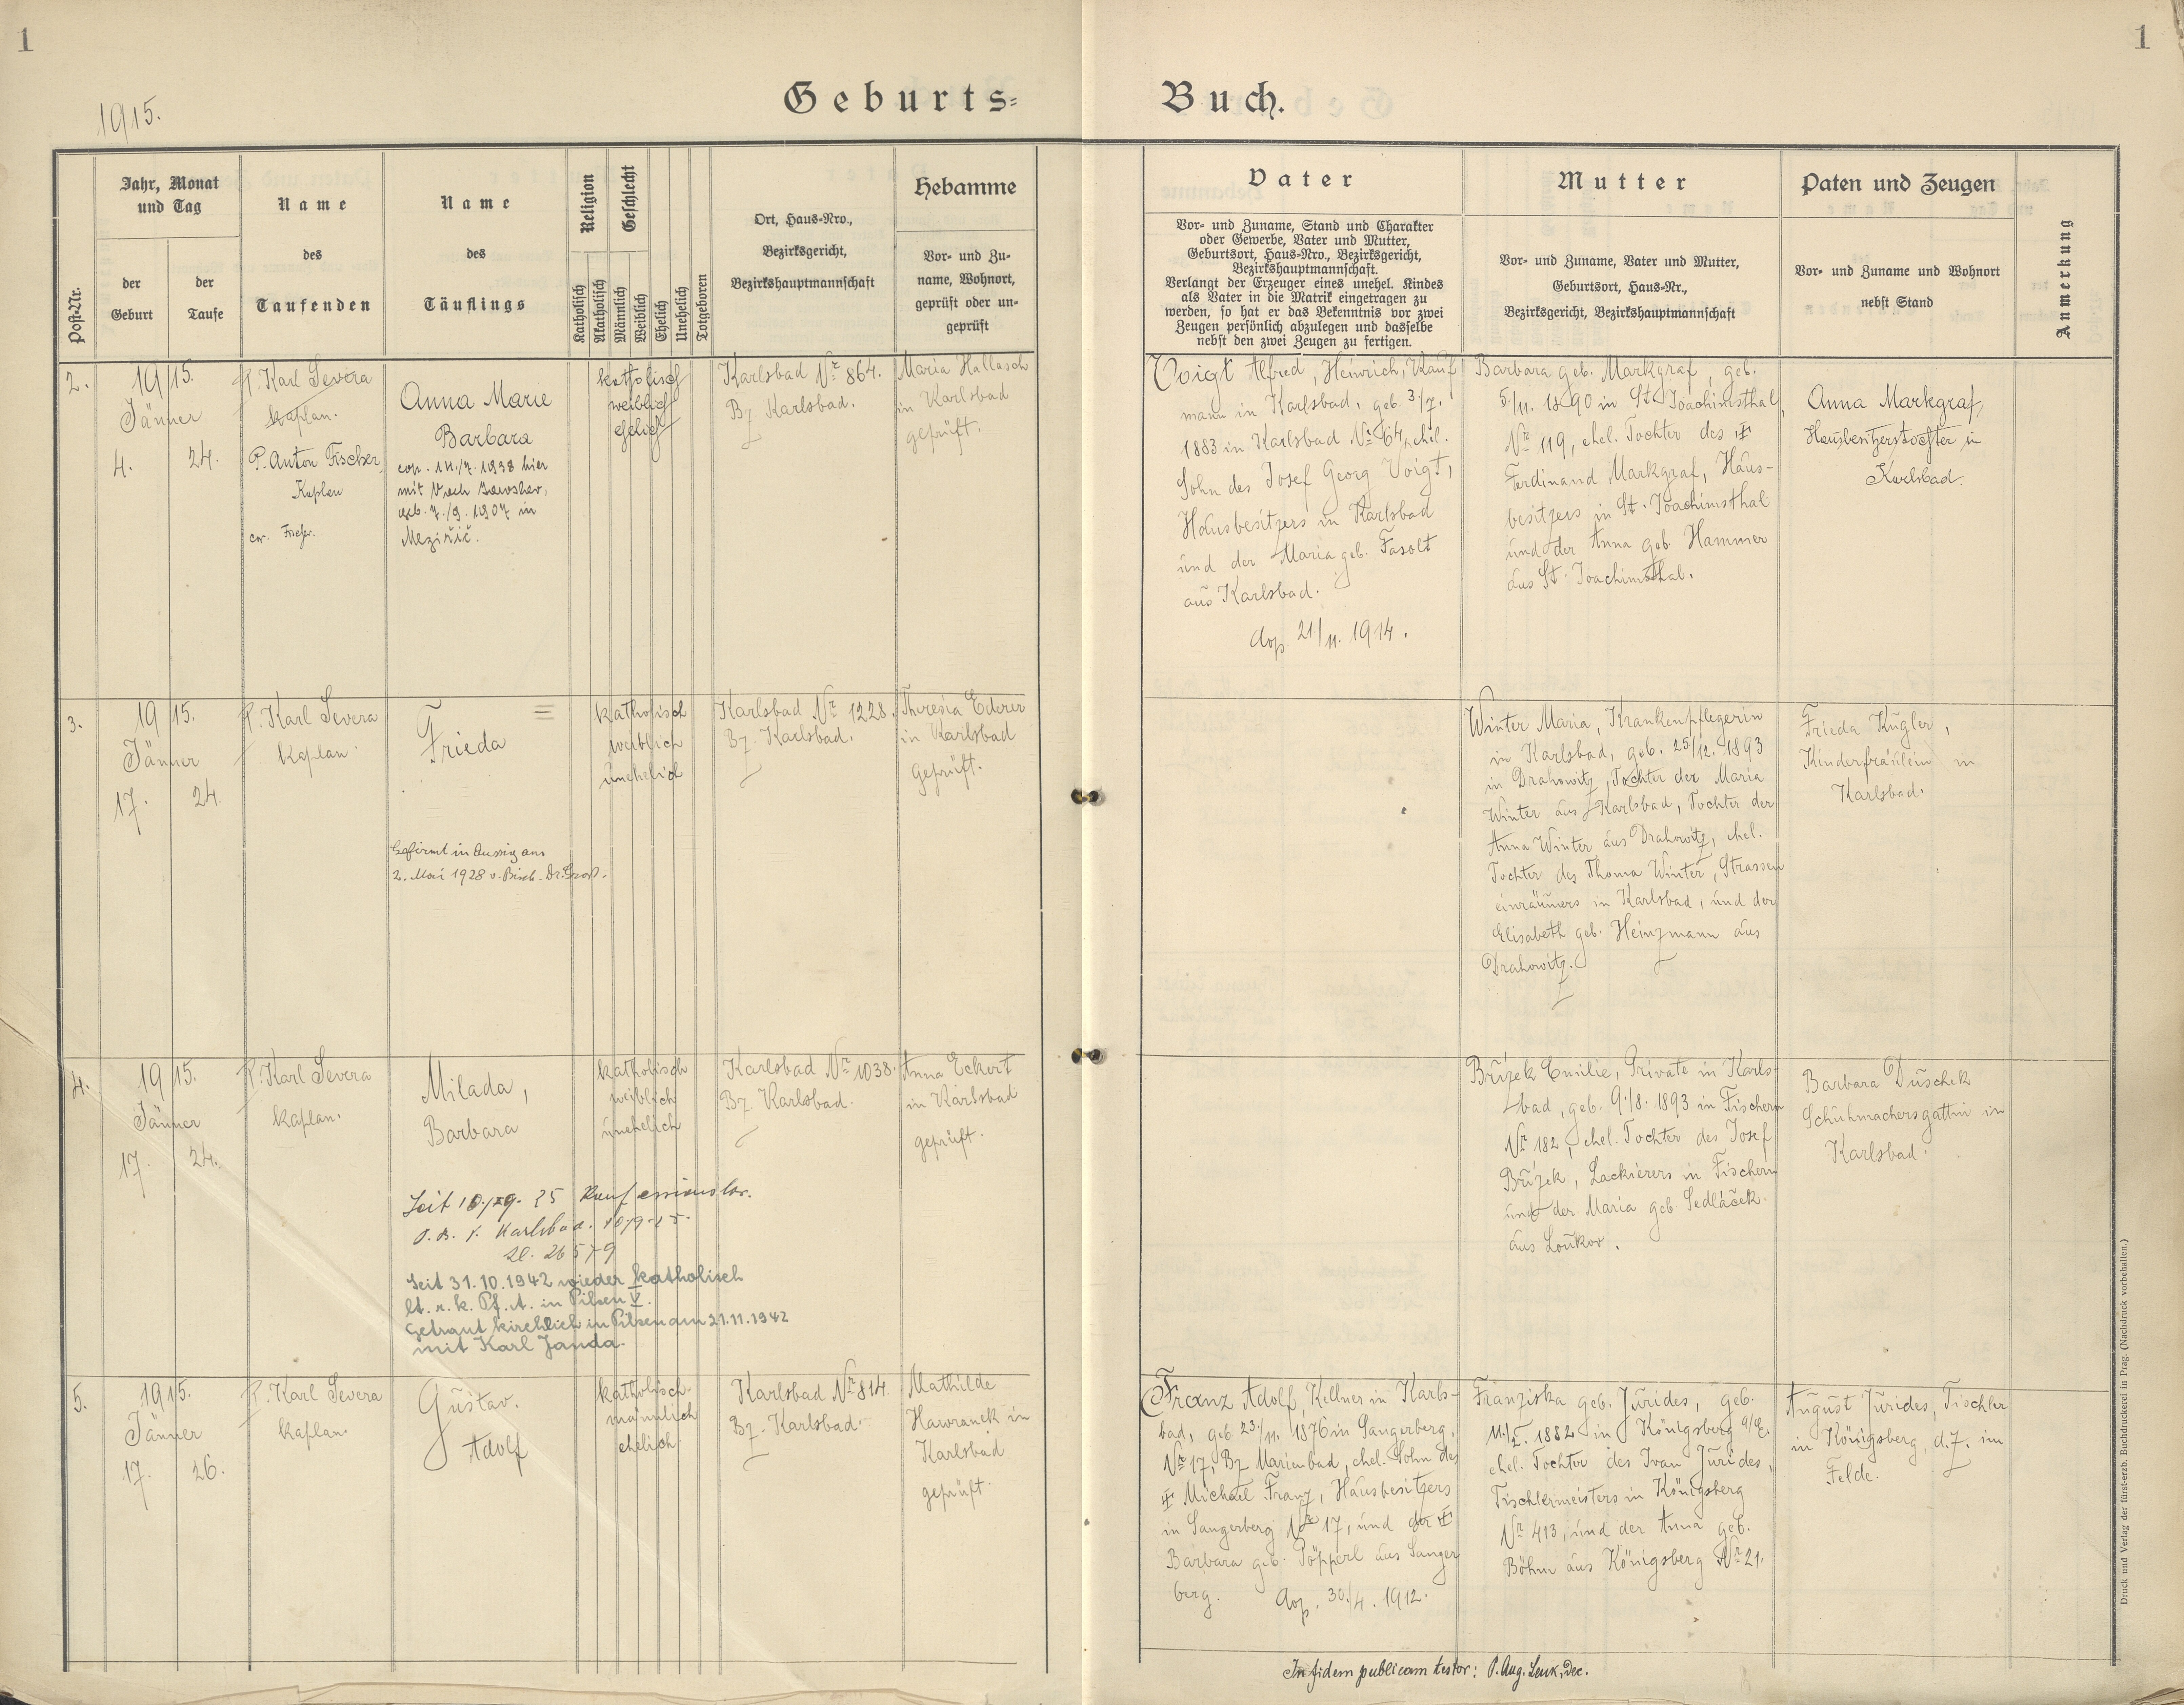 1
1
1915.
Geburts=
Buch.
Post-Nr.
Jahr, Monat
und Tag
der
Geburt
der
Taufe
Name
des
Taufenden
Name
des
Täuflings
Religion
Katholisch
Akatholisch
Geschlecht
Männlich
Weiblich
Ehelich
Unehelich
Totgeboren
Ort, Haus-Nro.,
Bezirksgericht,
Bezirkshauptmannschaft
Hebamme
Vor- und Zu-
name, Wohnort,
geprüft oder un-
geprüft
Vater
Vor- und Zuname, Stand und Charakter
oder Gewerbe, Vater und Mutter,
Geburtsort, Haus-Nro., Bezirksgericht,
Bezirkshauptmannschaft.
Verlangt der Erzeuger eines unehel. Kindes
als Vater in die Matrik eingetragen zu
werden, so hat er das Bekenntnis vor zwei
Zeugen persönlich abzulegen und dasselbe
nebst den zwei Zeugen zu fertigen.
Mutter
Vor- und Zuname, Vater und Mutter,
Geburtsort, Haus-Nr.,
Bezirksgericht, Bezirkshauptmannschaft
Paten und Zeugen
Vor- und Zuname und Wohnort
nebst Stand
Anmerkung
2.
1915.
Jänner
4.
24.
P. Karl Severa
Kaplan.
P. Anton Fischer
Kaplan
Anna Marie
Barbara
cop. 14./7. 1938 hier
mit
geb. 7./9. 1907 in
Meziřič.
katholisch
weiblich
ehelich
Karlsbad Nr 864.
Bz. Karlsbad.
Maria Hallasch
in Karlsbad
geprüft.
Voigt Alfred, Heinrich, Kauf
mann in Karlsbad, geb. 3./7.
1883 in Karlsbad Nr 64, ehel.
Sohn des Josef Georg Voigt,
Hausbesitzers in Karlsbad
und der Maria geb. Fasolt
aus Karlsbad.
cop. 21/11. 1914.
Barbara geb. Markgraf, geb.
5/11. 1890 in St. Joachimsthal,
Nr 119, ehel. Tochter des ‡
Ferdinand Markgraf, Haus-
besitzers in St. Joachimsthal
und der Anna geb. Hammer
aus St. Joachimsthal.
Anna Markgraf,
Hausbesitzerstochter in
Karlsbad.
3.
1915.
Jänner
17.
24.
P. Karl Severa
Kaplan.
Frieda
Gefirmt in Aussig am
2. Mai 1928 v. Bisch. Dr. Gross.
katholisch
weiblich
unehelich
Karlsbad Nr 1228.
Bz. Karlsbad.
Theresia Ederer
in Karlsbad
geprüft.
Winter Maria, Krankenpflegerin
in Karlsbad, geb. 25/12. 1893
in Drahowitz, Tochter der Maria
Winter aus Karlsbad, Tochter der
Anna Winter aus Drahowitz, ehel.
Tochter des Thoma Winter, Strassen
einräumers in Karlsbad, und der
Elisabeth geb. Heinzmann aus
Drahowitz.
Frieda Kugler,
Kinderfräulein in
Karlsbad.
4.
1915.
Jänner
17.
24.
P. Karl Severa
Kaplan.
Milada,
Barbara
Seit 10./9. 25 Konfessionslos.
Karlsbad. 10-9-25.
Zl. 26579
Seit 31.10.1942 wieder katholisch
lt. r. k. Pf. A. in Pilsen V.
Getraut kirchlich in Pilsen am 21.11.1942
mit Karl Janda.
katholisch
weiblich
unehelich
Karlsbad Nr 1038.
Bz. Karlsbad.
Anna Eckert
in Karlsbad
geprüft.
Břízek Emilie, Private in Karls-
bad, geb. 9./8. 1893 in Fischern
Nr 182, ehel. Tochter des Josef
Břízek, Lackierers in Fischern
und der Maria geb. Sedláček
aus Loukov.
Barbara Duschek
Schuhmachersgattin in
Karlsbad.
5.
1915.
Jänner
17.
26.
P. Karl Severa
Kaplan.
Gustav.
Adolf
katholisch
männlich
ehelich.
Karlsbad Nr 814.
Bz. Karlsbad.
Mathilde
Hawranek in
Karlsbad
geprüft.
Franz Adolf, Kellner in Karls-
bad, geb. 23./11. 1876 in Sangerberg,
Nr 17, Bz Marienbad, ehel. Sohn des
‡ Michael Franz, Hausbesitzers
in Sangerberg Nr 17, und der ‡
Barbara geb. Pöpperl aus Sanger
berg. cop. 30./4. 1912.
Franziska geb. Jurides, geb.
11./5. 1882 in Königsberg a/E.
ehel. Tochter des Ivan Jurides,
Tischlermeisters in Königsberg
Nr 413, und der Anna geb.
Böhm aus Königsberg Nr 21.
August Jurides, Tischler
in Königsberg, d. Z. im
Felde.
In fidem publicam testor: P. Aug. Lenk, Dec.
Druck und Verlag der fürst-erzb. Buchdruckerei in Prag. (Nachdruck vorbehalten.)